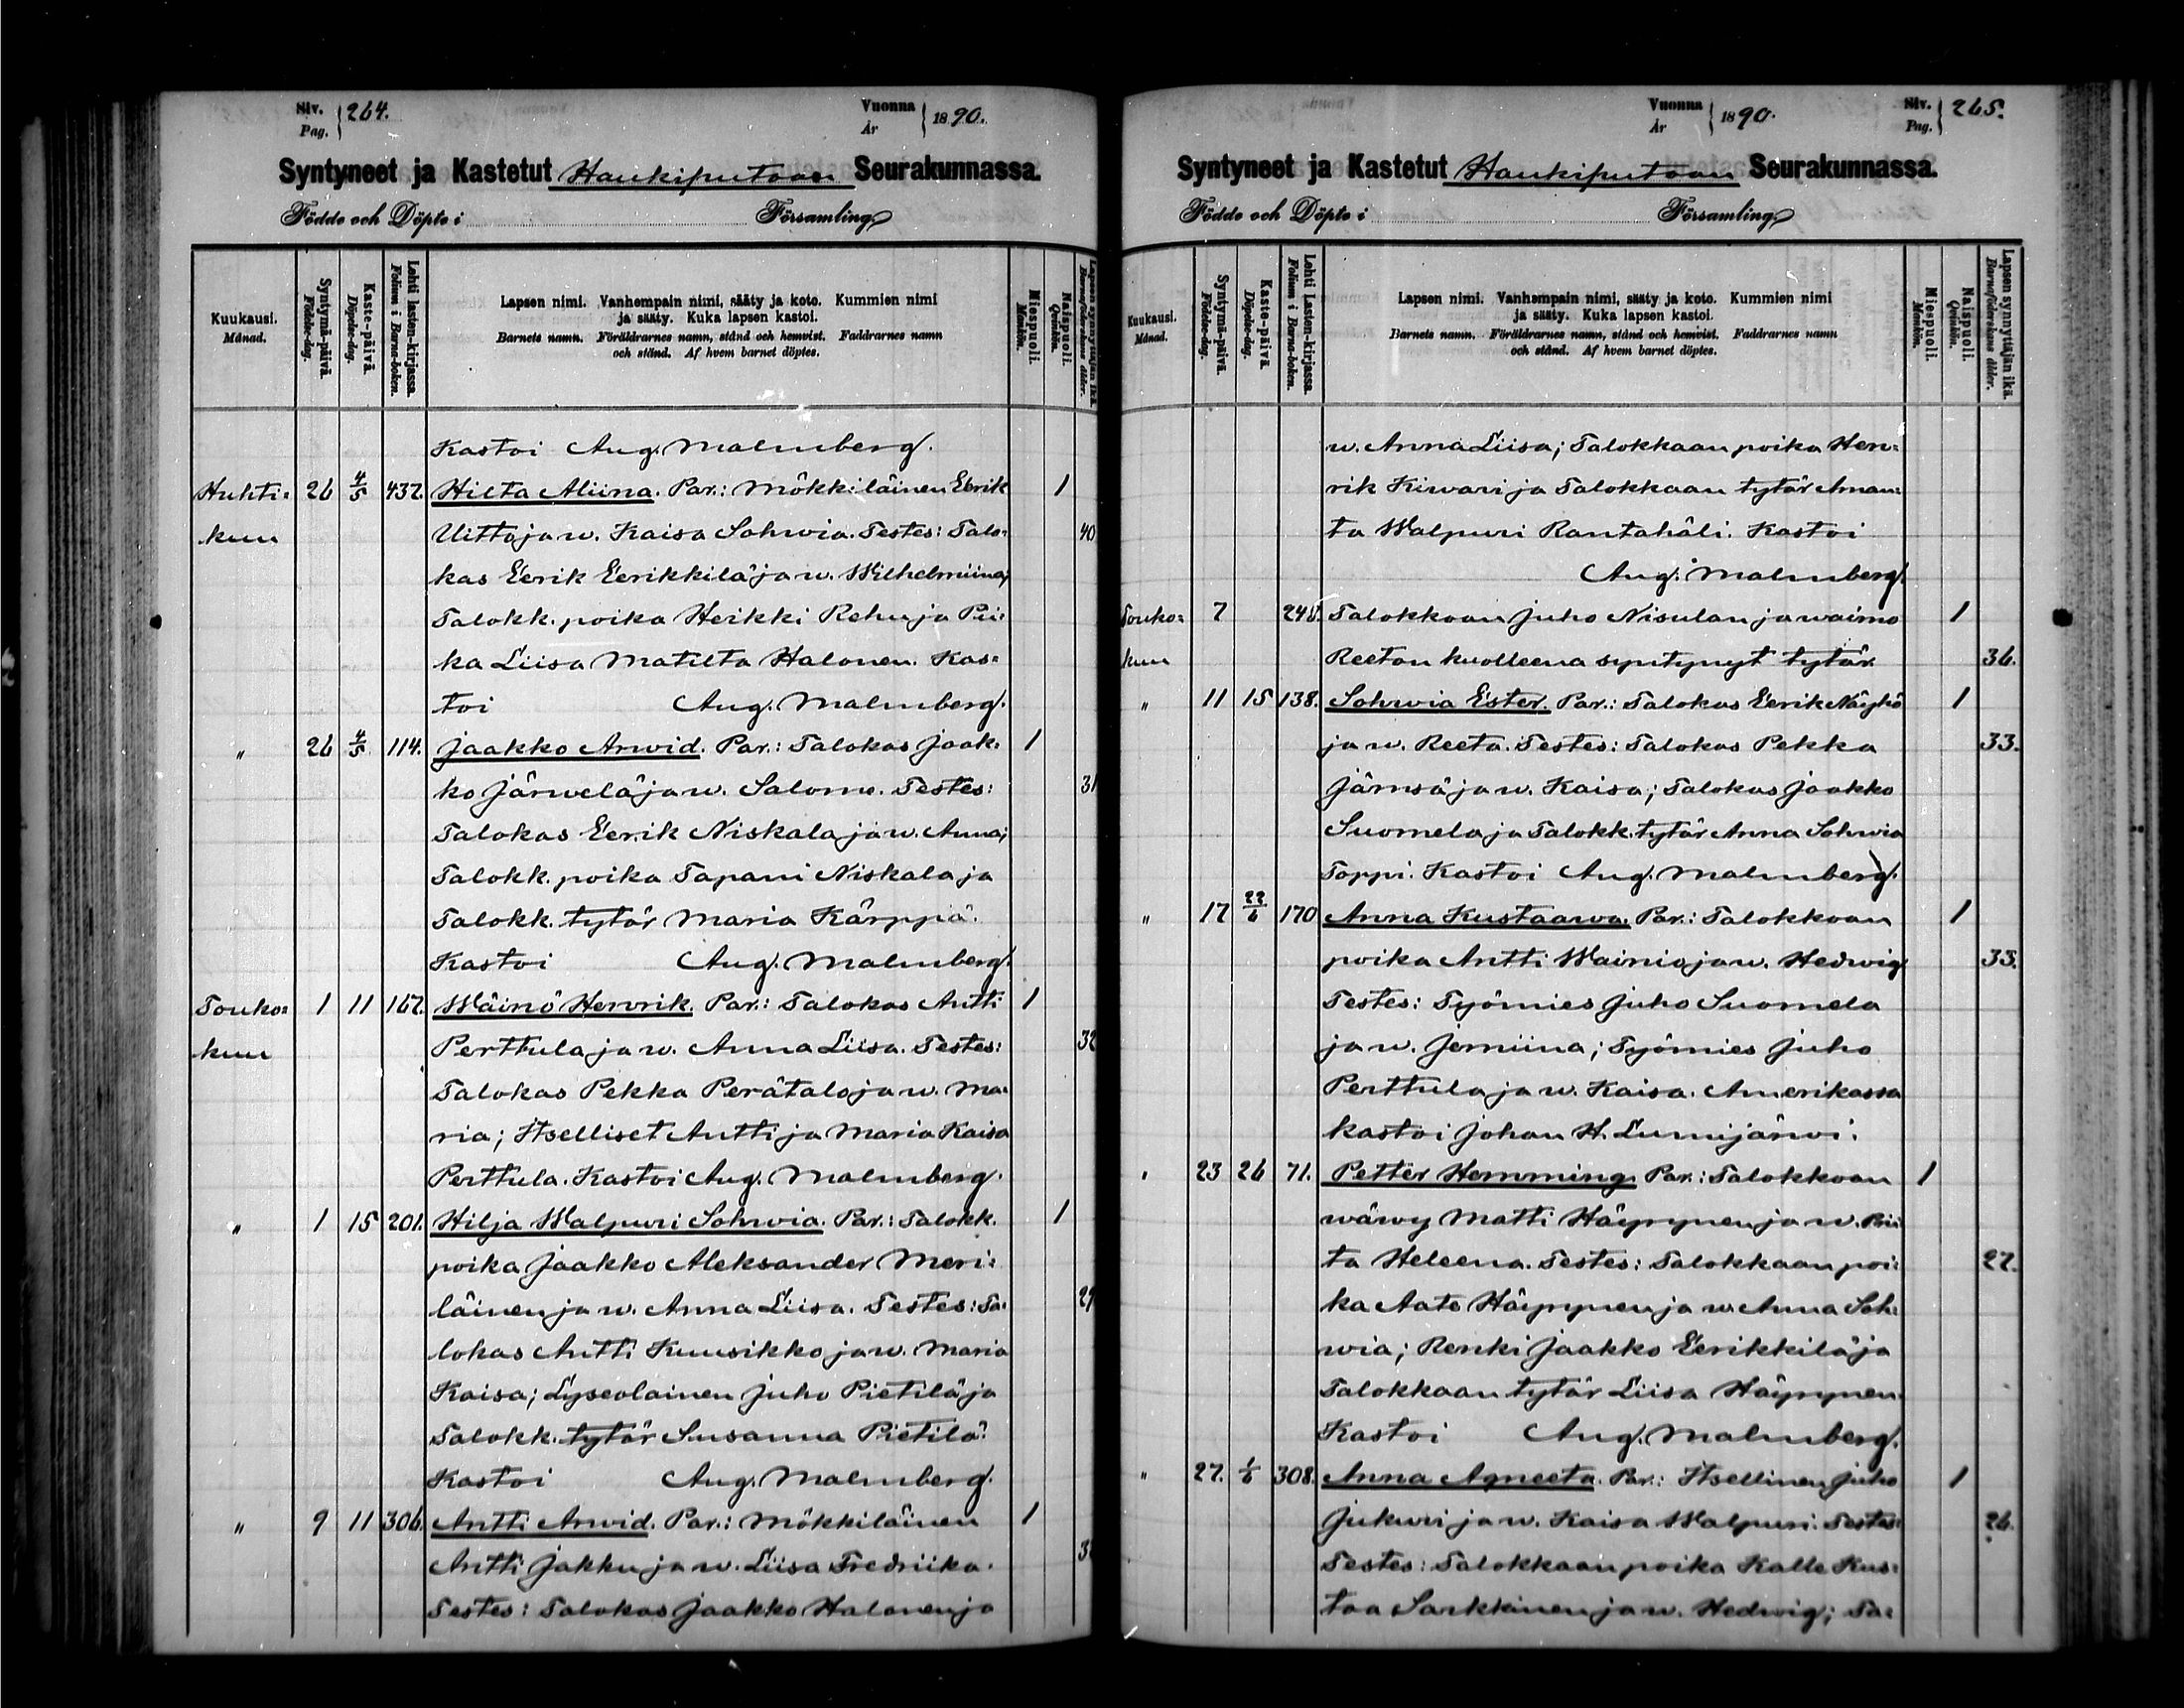 Siv. Pag. 264.
Vuonna År 1890.
Syntyneet ja Kastetut Haukiputaan Seurakunnassa.
Födde och Döpte i Församling
Kuukausi. Månad.
Syntymä-päivä. Födelse-dag.
Kaste-päivä. Döpelse-dag.
Lehti lasten-kirjassa. Folium i Barna-boken.
Lapsen nimi. Vanhempain nimi, sääty ja koto. Kummien nimi
ja sääty. Kuka lapsen kastoi.
Barnets namn. Föräldrarnes namn, stånd och hemvist. Faddrarnes namn
och stånd. Af hvem barnet döptes.
Miespuoli. Mankön.
Naispuoli. Qvinkön.
Lapsen synnyttäjän ikä. Barnaföderskans ålder.
Kastoi Aug. Malmberg.
Huhti= 26 4/5 432. Hilta Aliina. Par.: Mökkiläinen Eerik 1
kuu Uitto ja w. Kaisa Sohwia. Testes: Talo= 40
kas Eerik Eerikkilä ja w. Wilhelmiina;
Talokk. poika Heikki Rehu ja Pii=
ka Liisa Matilta Halonen. Kas=
toi Aug. Malmberg.
" 26 4/5 114. Jaakko Arwid. Par.: Talokas Jaak= 1
ko Järwelä ja w. Salome. Testes: 31
Talokas Eerik Niskala ja w. Anna;
Talokk. poika Tapani Niskala ja
Talokk. tytär Maria Kärppä.
Kastoi Aug. Malmberg.
Touko= 1 11 167. Wäinö Henrik. Par.: Talokas Antti 1
kuu Perttula ja w. Anna Liisa. Testes: 32
Talokas Pekka Perätalo ja w. Ma=
ria; Itselliset Antti ja Maria Kaisa
Perttula. Kastoi Aug. Malmberg.
" 1 15 201. Hilja Walpuri Sohwia. Par.: Talokk. 1
poika Jaakko Aleksander Meri=
läinen ja w. Anna Liisa. Testes: Ta= 29
lokas Antti Kuusikko ja w. Maria
Kaisa; Lyseolainen Juho Pietilä ja
Talokk. tytär Susanna Pietilä.
Kastoi Aug. Malmberg.
" 9 11 306. Antti Arwid. Par.: Mökkiläinen 1
Antti Jakku ja w. Liisa Fredriika.
Testes: Talokas Jaakko Halonen ja
Vuonna År 1890.
Siv. Pag. 265.
Syntyneet ja Kastetut Haukiputaan Seurakunnassa.
Födde och Döpte i Församling
Kuukausi. Månad.
Syntymä-päivä. Födelse-dag.
Kaste-päivä. Döpelse-dag.
Lehti Lasten-kirjassa. Folium i Barna-boken.
Lapsen nimi. Vanhempain nimi, sääty ja koto. Kummien nimi
ja sääty. Kuka lapsen kastoi.
Barnets namn. Föräldrarnes namn, stånd och hemvist. Faddrarnes namn
och stånd. Af hvem barnet döptes.
Miespuoli. Mankön.
Naispuoli. Qvinkön.
Lapsen synnyttäjän ikä. Barnaföderskans ålder.
w. Anna Liisa; Talokkaan poika Hen=
rik Kiwari ja Talokkaan tytär Aman=
ta Walpuri Rantahäli. Kastoi
Aug. Malmberg.
Touko= 7 248. Talokkaan Juho Nisulan ja waimo 1
kuu Reetan kuolleena syntynyt tytär. 36.
" 11 15 138. Sohwia Ester. Par.: Talokas Eerik Näyhö 1
ja w. Reeta. Testes: Talokas Pekka 33.
Jämsä ja w. Kaisa; Talokas Jaakko
Suomela ja Talokk. tytär Anna Sohwia
Toppi. Kastoi Aug. Malmberg.
" 17 22/6 170 Anna Kustaawa. Par.: Talokkaan 1
poika Antti Wainio ja w. Hedwig 33.
Testes: Työmies Juho Suomela
ja w. Jemiina; Työmies Juho
Perttula ja w. Kaisa. Amerikassa
kastoi Johan H. Lumijärwi.
" 23 26 71. Petter Hemming. Par.: Talokkaan 1
wäwy Matti Häyrynen ja w. Brii
ta Heleena. Testes: Talokkaan poi= 27.
ka Aato Häyrynen ja w. Anna Soh=
wia; Renki Jaakko Eerikkilä ja
Talokkaan tytär Liisa Häyrynen.
Kastoi Aug. Malmberg.
" 27. 1/6 308. Anna Agneeta. Par.: Itsellinen Juho 1
Jukuri ja w. Kaisa Walpuri. Testes: 26.
Testes: Talokkaan poika Kalle Kus=
taa Sarkkinen ja w. Hedwig; Ta=